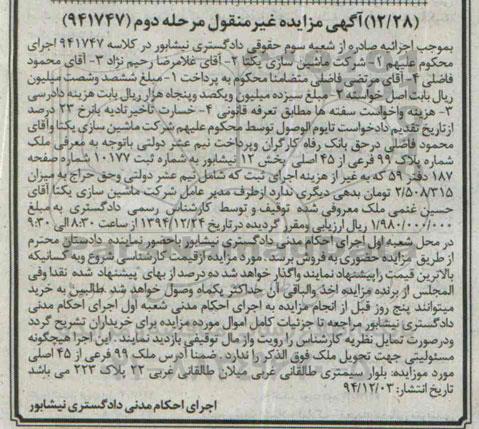 (۱۲/۲۸) آگهی مزایده غیر منقول مرحله دوم (۹۴۱۷۴۷)
بموجب اجرائیه صادره از شعبه سوم حقوقی دادگستری نیشابور در کلاسه ۹۴۱۷۴۷ اجرای
محکوم علیهم ۱- شرکت ماشین سازی یکتا ۲- آقای غلامرضا رحیم نژاد ۳- آقای محمود
فاضلی ۴- آقای مرتضی فاضلی متضامنا محکوم به پرداخت ۱- مبلغ ششصد وشصت میلیون
ریال بابت اصل خواسته ۲- مبلغ سیزده میلیون ویکصد وپنجاه هزار ریال بابت هزینه دادرسی
۳- هزینه واخواست سفته ها مطابق تعرفه قانونی ۴- خسارت تاخیر تادیه بانرخ ۲۳ درصد
از تاریخ تقدیم دادخواست تا یوم الوصول توسط محکوم علیهم شرکت ماشین سازی یکتا وآقای
محمود فاضلی درحق بانک رفاه کارگران وپرداخت نیم عشر دولتی باتوجه به معرفی ملک
شماره پلاک ۹۹ فرعی از ۴۵ اصلی بخش ۱۲ نیشابور به شماره ثبت ۱۰۱۷۷ شماره صفحه
۱۸۷ دفتر ۵۹ که به غیر از هزینه اجرای ثبت که شامل نیم عشر دولتی وحق حراج به میزان
۲/۵۰۸/۳۱۵ تومان بدهی دیگری ندارد ازطرف مدیر عامل شرکت ماشین سازی یکتا آقای
حسین غنمی ملک معروفی شده توقیف و توسط کارشناس رسمی دادگستری به مبلغ
۱/۹۸۰/۰۰۰/۰۰۰ ریال ارزیابی ومقرر گردیده در تاریخ ۱۳۹۴/۱۲/۲۴ از ساعت ۸:۳۰ الی ۹:۳۰
در محل شعبه اول اجرای احکام مدنی دادگستری نیشابور باحضور نماینده دادستان محترم
از طریق مزایده حضوری به فروش برسد. مورد مزایده ازقیمت کارشناسی شروع وبه کسانیکه
بالاترین قیمت را پیشنهاد نمایند واگذار خواهد شد ده درصد از بهای پیشنهاد شده نقدا وفی
المجلس از برنده مزایده اخذ والباقی آن حداکثر یکماه وصول خواهد شد. طالبین به خرید
میتوانند پنج روز قبل از انجام مزایده به اجرای احکام مدنی شعبه اول اجرای احکام مدنی
دادگستری نیشابور مراجعه تا جزئیات کامل اموال مورده مزایده برای خریداران تشریح گردد
ودرصورت تمایل نظریه کارشناس را رویت واز مال توقیفی بازدید نمایند. این اجرا هیچگونه
مسئولیتی جهت تحویل ملک فوق الذکر را ندارد. ضمنا آدرس ملک ۹۹ فرعی از ۴۵ اصلی
مورد موزایده: بلوار سیمتری طالقانی غربی میلان طالقانی غربی ۲۲ پلاک ۲۲۳ می باشد
تاریخ انتشار: ۹۴/۱۲/۰۳
اجرای احکام مدنی دادگستری نیشابور